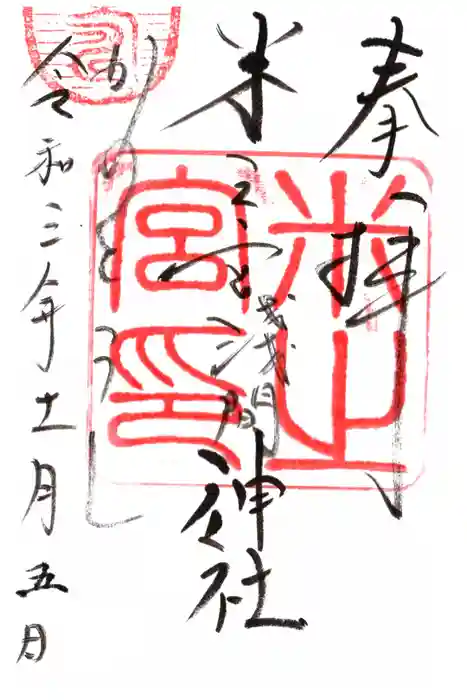 奉拝
米之宮浅間神社
令和三年十一月五日
米之宮印